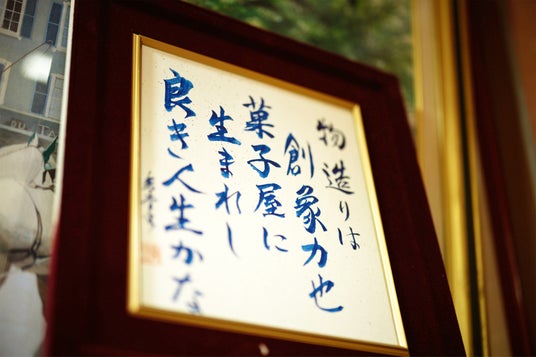 物造りは
創象力也
菓子屋に
生まれし
良き人生かな